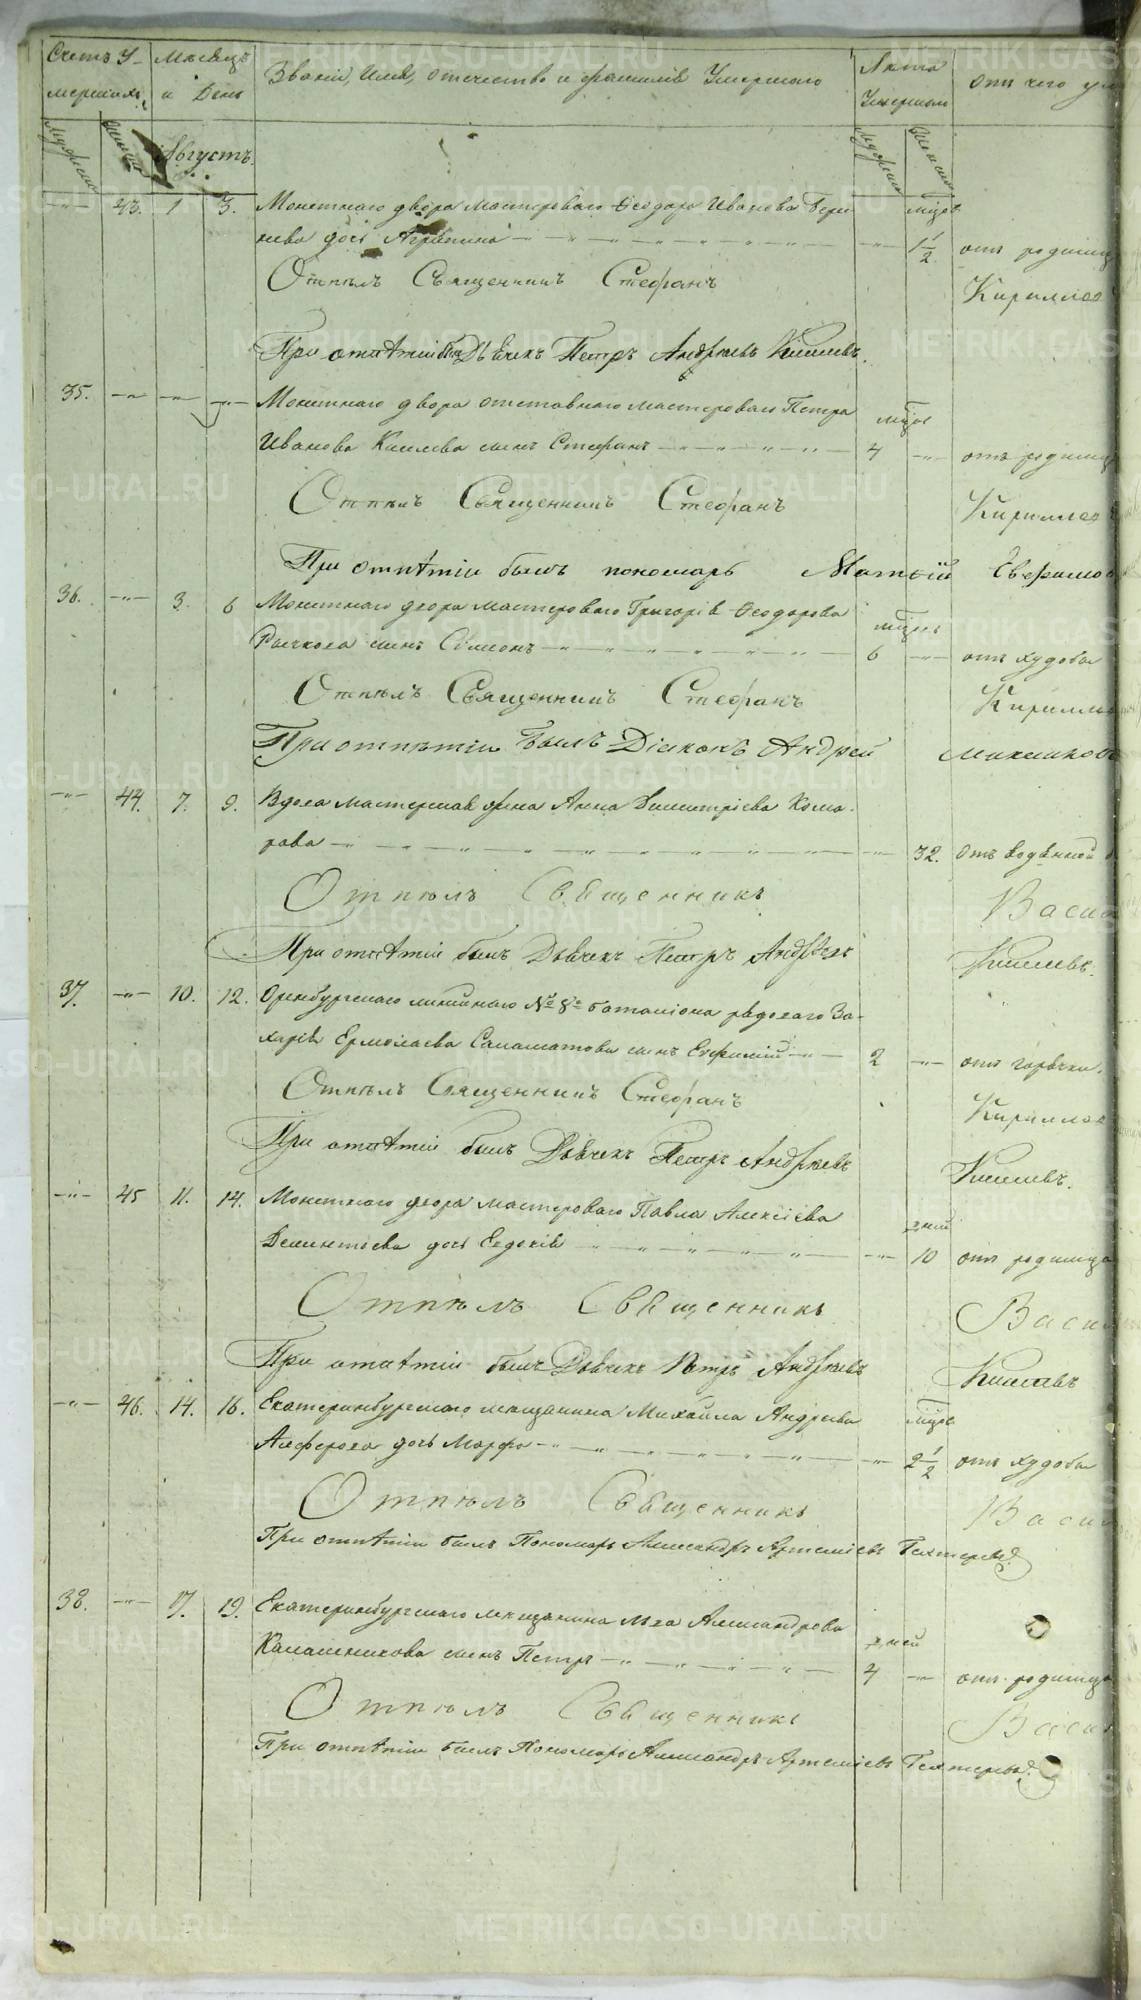 Счетъ У-
мершихъ,
Мѣсяцъ
и День
Званіе, Имя, отечество и фамилія Умершаго
Лѣта
Умершаго
отъ чего
Мужеска
Женска
Августъ.
Мужеска
Женска
43. 1 3. Монетнаго двора мастероваго Ѳеодора Иванова мѣсяц.
дочь Агрипина 1 1/2. отъ родимца
Отпѣлъ Священникъ Стефанъ
Кириллов
При отпѣтіи былъ Дьячекъ Петръ Андреевъ Киселевъ.
35. Монетнаго двора отставнаго мастероваго Петра
Иванова Киселева сынъ Стефанъ 4 отъ родимца
Отпѣлъ Священникъ Стефанъ
Кириллов
При отпѣтіи былъ пономарь Матѳій Евфимов
36. 3. 6 Монетнаго двора мастероваго Григорія Ѳеодорова
Рычкова сынъ Сѵмеонъ 6 отъ худобы
Отпѣлъ Священникъ Стефанъ
Кирилло
При отпѣтіи былъ Діаконъ Андрей
44. 7. 9. Вдова мастерская жена Анна Димитріева Кома-
рова 32. Отъ водяной
Отпѣлъ Священникъ
Васи
При отпѣтіи былъ Дьячекъ Петръ Андреевъ Киселевъ.
37. 10. 12. Оренбургскаго линейнаго № 8го баталіона рядоваго За-
харія Ермолаева Саламатова сынъ Евфимій 2 отъ горячки.
Отпѣлъ Священникъ Стефанъ
Кириллов
При отпѣтіи былъ Дьячекъ Петръ Андреевъ
Киселевъ.
45 11. 14. Монетнаго двора мастероваго Павла Алексіева дней
Дементьева дочь Евдокія 10 отъ родимца
Отпѣлъ Священникъ
Васи
При отпѣтіи былъ Дьячекъ Петръ Андреевъ Киселевъ
46. 14. 16. Екатеринбургскаго мещанина Михайла Андреева
Алферова дочь Марфа 2 1/2 отъ худобы
Отпѣлъ Священникъ Васи
При отпѣтіи былъ Пономарь Александръ Артеміевъ
38. 17. 19. Екатеринбургскаго мещанина Льва Александрова
дней
Калашникова сынъ Петръ 4 отъ родимца
Отпѣлъ Священникъ Васи
При отпѣтіи былъ Пономарь Александръ Артеміевъ
METRIKI.GASO-URAL.RU